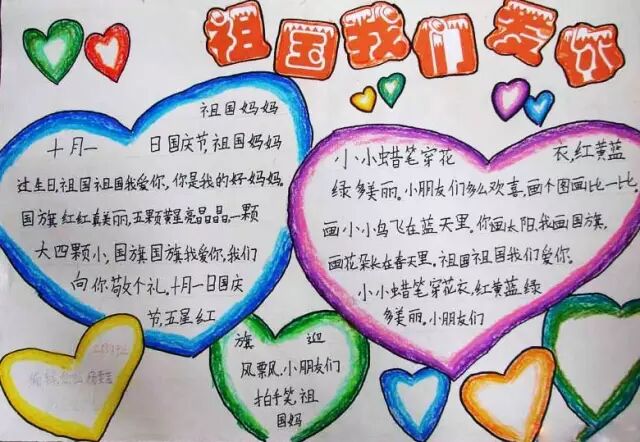 祖国我们爱你
祖国妈妈
十月一 日国庆节,祖国妈妈
过生日,祖国祖国我爱你,你是我的好妈妈。
国旗红红真美丽,五颗黄星亮晶晶,一颗
大四颗小,国旗国旗我爱你,我们
向你敬个礼。十月一日国庆
节,五星红
旗 迎
风飘,小朋友们
拍手笑,祖
国妈
小小蜡笔穿花 衣,红黄蓝
绿多美丽。小朋友们多么欢喜,画个图画比一比,
画小小鸟飞在蓝天里。你画太阳,我画国旗,
画花朵长在春天里。祖国祖国我们爱你。
小小蜡笔穿花衣,红黄蓝绿
多美丽。小朋友们